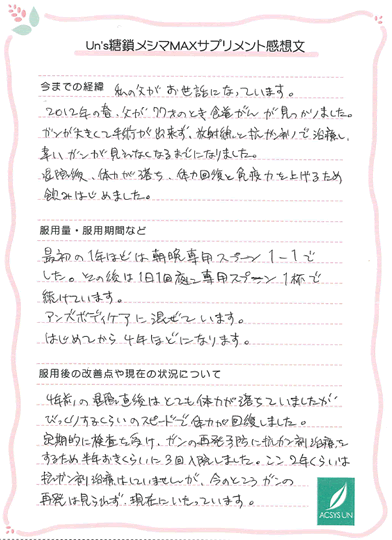 Un's糖鎖メシマMAXサプリメント感想文
今までの経緯 私の父がお世話になっています。
2012年の春、父が77才のとき食道がんが見つかりました。
ガンが大きくて手術が出来ず、放射線と抗がん剤で治療し、
幸いガンが見えなくなるまでになりました。
退院後、体力が落ち、体力回復と免疫力を上げるため
飲みはじめました。
服用量・服用期間など
最初の1年ほどは朝晩専用スプーン1-1で
した。その後は1日1回 専用スプーン1杯で
続けています。
アンズボディケアに混ぜています。
はじめてから4年ほどになります。
服用後の改善点や現在の状況について
4年前の退院直後はとても体力が落ちていましたが
びっくりするくらいのスピードで体力が回復しました。
定期的に検査も受け、ガンの再発予防に抗がん剤治療を
するため半年おきくらいに3回入院しました。ここ2年くらいは
抗がん剤治療はしていませんが、今のところガンの
再発は見られず、現在にいたっています。
ACSYS UN